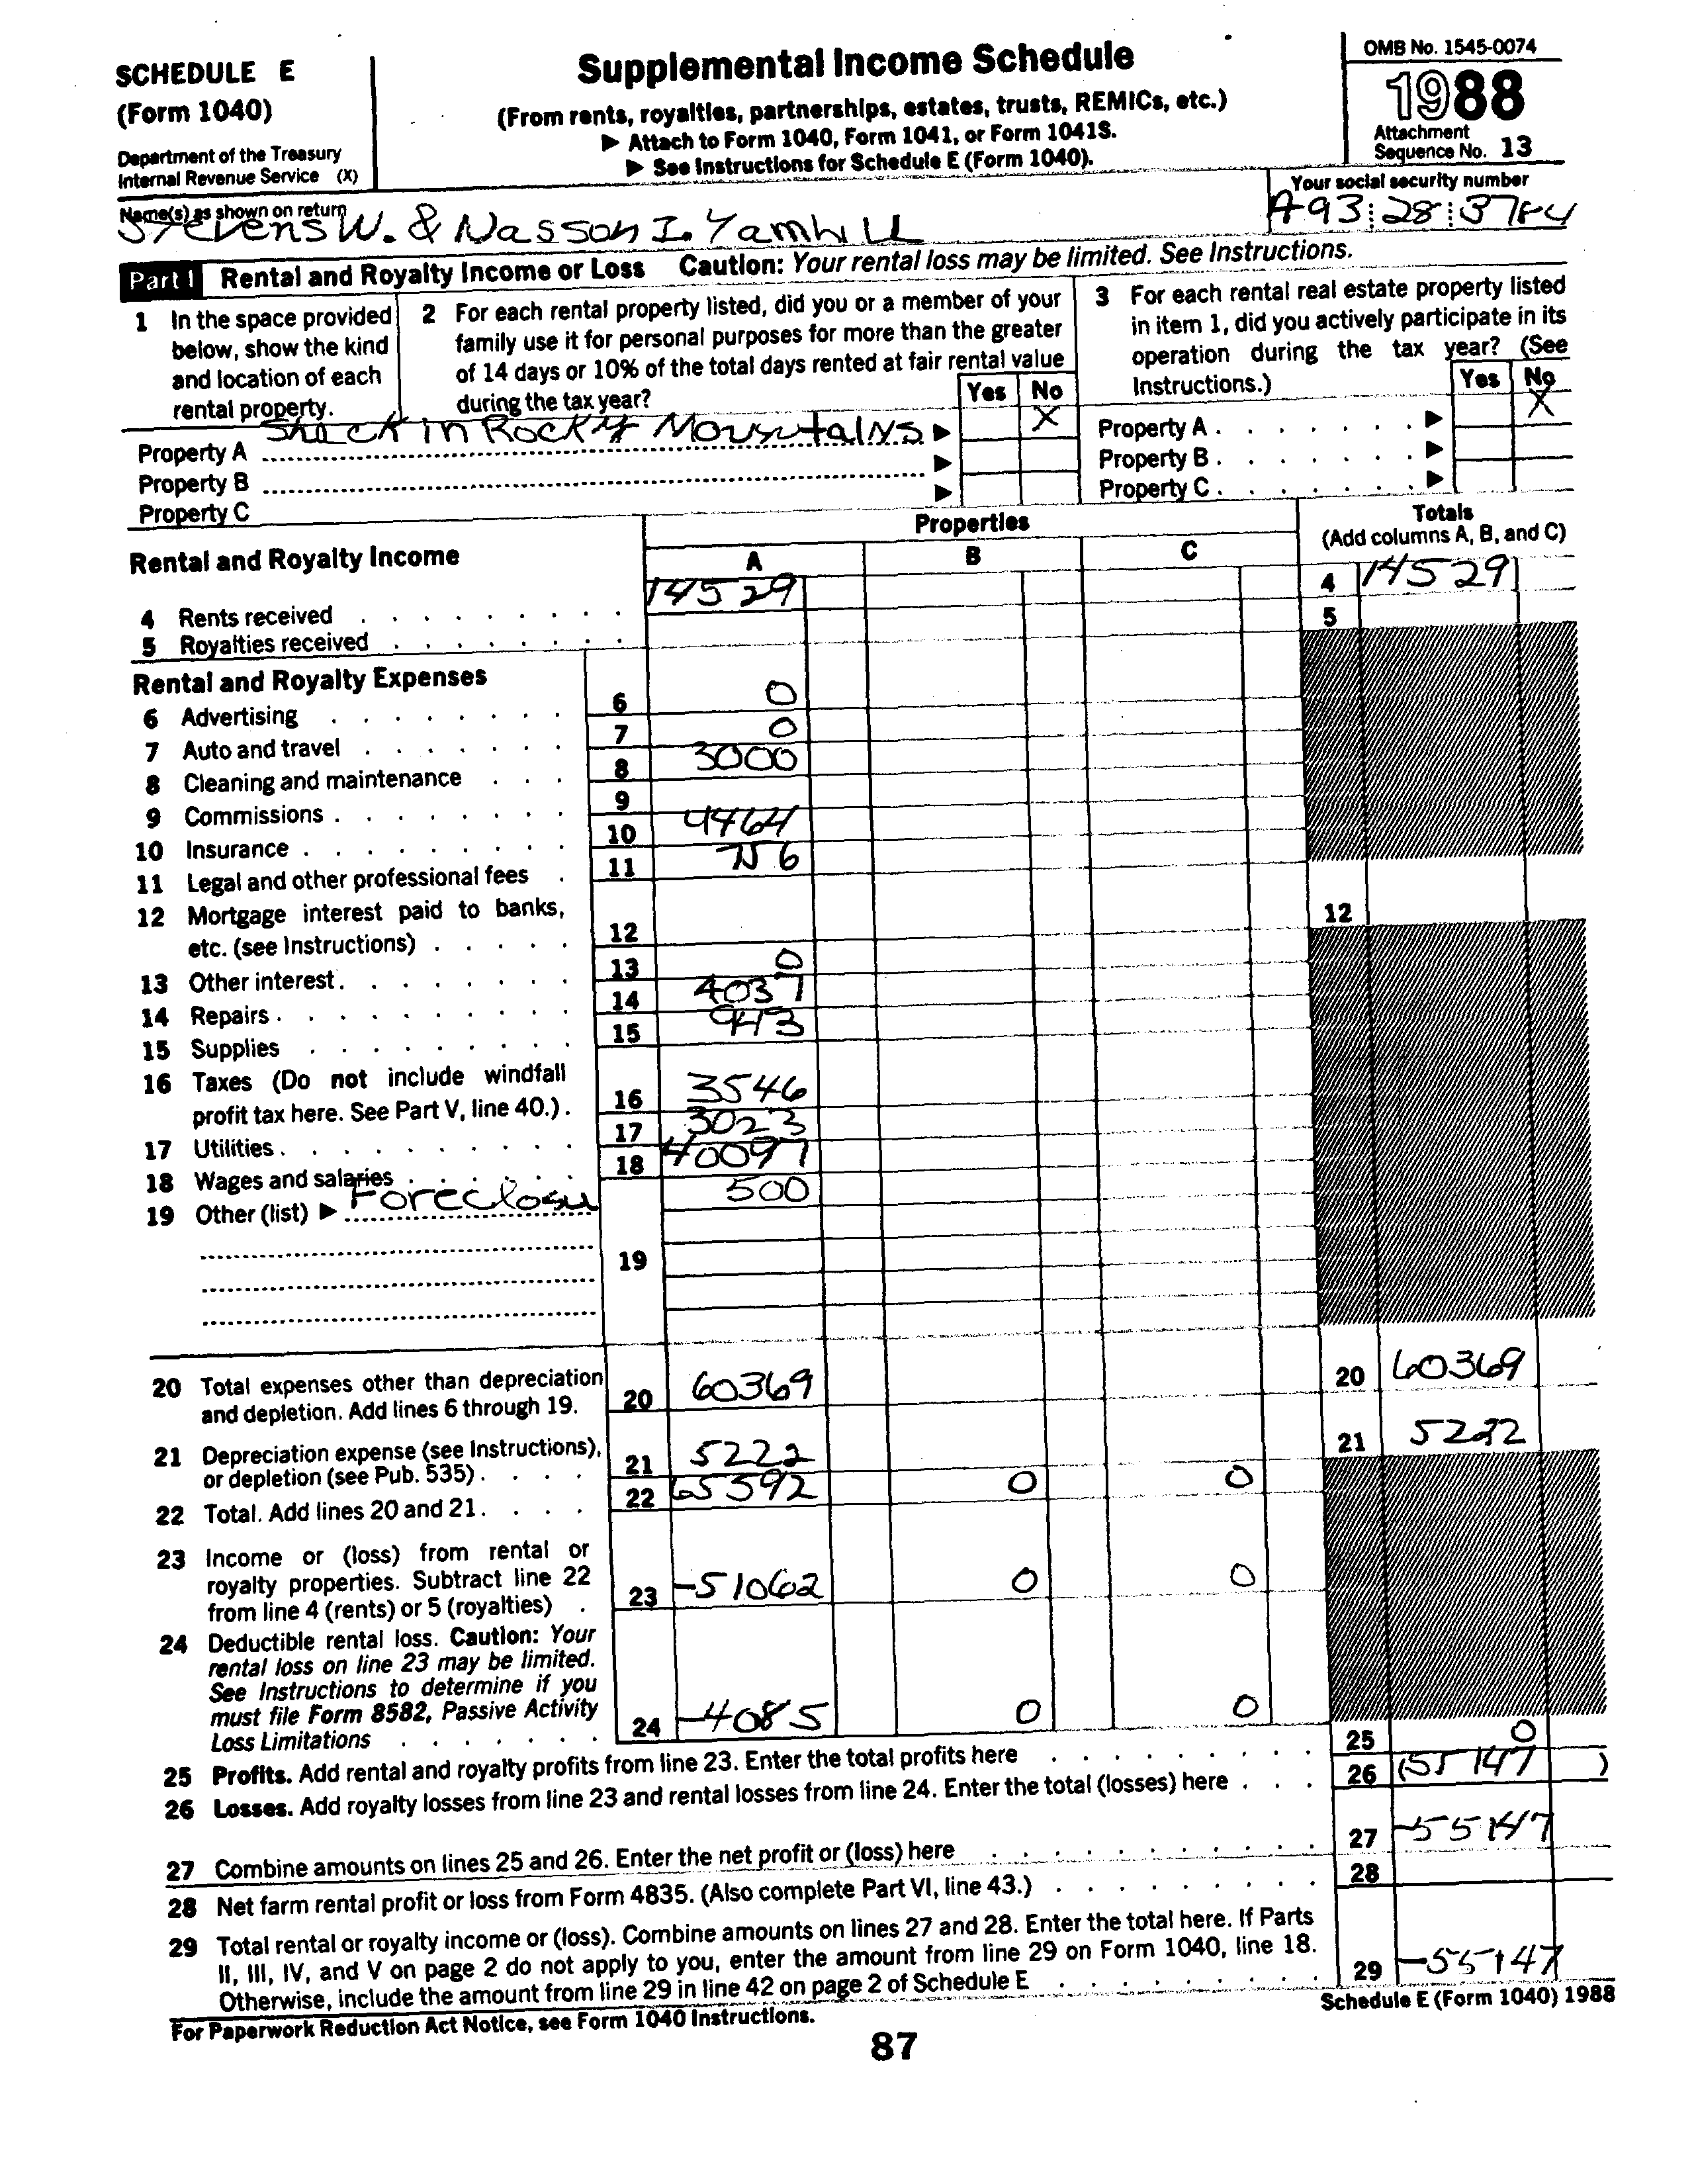 SCHEDULE E
(Form 1040)
Department of the Treasury
Internal Revenue Service (X)
Supplemental Income Schedule
(From rents, royalties, partnerships, estates, trusts, REMICs, etc.)
▶ Attach to Form 1040, Form 1041, or Form 1041S.
▶ See Instructions for Schedule E (Form 1040).
OMB No. 1545-0074
1988
Attachment
Sequence No. 13
Name(s) as shown on return
Stevens W. & Nasson I. Yamhill
Your social security number
28
Part I Rental and Royalty Income or Loss Caution: Your rental loss may be limited. See Instructions.
1 In the space provided
below, show the kind
and location of each
rental property.
2 For each rental property listed, did you or a member of your
family use it for personal purposes for more than the greater
of 14 days or 10% of the total days rented at fair rental value
during the tax year?
Yes No
3 For each rental real estate property listed
in item 1, did you actively participate in its
operation during the tax year? (See
Instructions.)
Yes No
Property A Shack in Rocky Mountains ▶ X
Property B ▶
Property C ▶
Property A ▶ X
Property B ▶
Property C ▶
Rental and Royalty Income
Properties
A B C
Totals
(Add columns A, B, and C)
4 Rents received 14529 4 14529
5 Royalties received 5
Rental and Royalty Expenses
6 Advertising 6 0
7 Auto and travel 7 0
8 Cleaning and maintenance 8 3000
9 Commissions 9
10 Insurance 10 4464
11 Legal and other professional fees 11
12 Mortgage interest paid to banks,
etc. (see Instructions) 12 12
13 Other interest 13 0
14 Repairs 14 4037
15 Supplies 15 943
16 Taxes (Do not include windfall
profit tax here. See Part V, line 40.) 16 3546
17 Utilities 17 3023
18 Wages and salaries 18 40097
19 Other (list) ▶ Foreclosu 500
19
20 Total expenses other than depreciation
and depletion. Add lines 6 through 19. 20 60369 20 60369
21 Depreciation expense (see Instructions),
or depletion (see Pub. 535) 21 5222 21 5222
22 Total. Add lines 20 and 21 22 65592 0 0
23 Income or (loss) from rental or
royalty properties. Subtract line 22
from line 4 (rents) or 5 (royalties) 23 -51062 0 0
24 Deductible rental loss. Caution: Your
rental loss on line 23 may be limited.
See Instructions to determine if you
must file Form 8582, Passive Activity
Loss Limitations 24 -4085 0 0
25 Profits. Add rental and royalty profits from line 23. Enter the total profits here 25 0
26 Losses. Add royalty losses from line 23 and rental losses from line 24. Enter the total (losses) here 26 (55147)
27 Combine amounts on lines 25 and 26. Enter the net profit or (loss) here 27 -55147
28 Net farm rental profit or loss from Form 4835. (Also complete Part VI, line 43.) 28
29 Total rental or royalty income or (loss). Combine amounts on lines 27 and 28. Enter the total here. If Parts
II, III, IV, and V on page 2 do not apply to you, enter the amount from line 29 on Form 1040, line 18.
Otherwise, include the amount from line 29 in line 42 on page 2 of Schedule E 29 -55147
For Paperwork Reduction Act Notice, see Form 1040 Instructions.
Schedule E (Form 1040) 1988
87